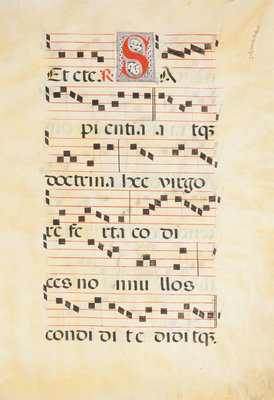 Et etc. R S A
pientia a tq3
doctrina hec virgo
re fe rta co di
ces no nnu llos
condi di t e diditq3.